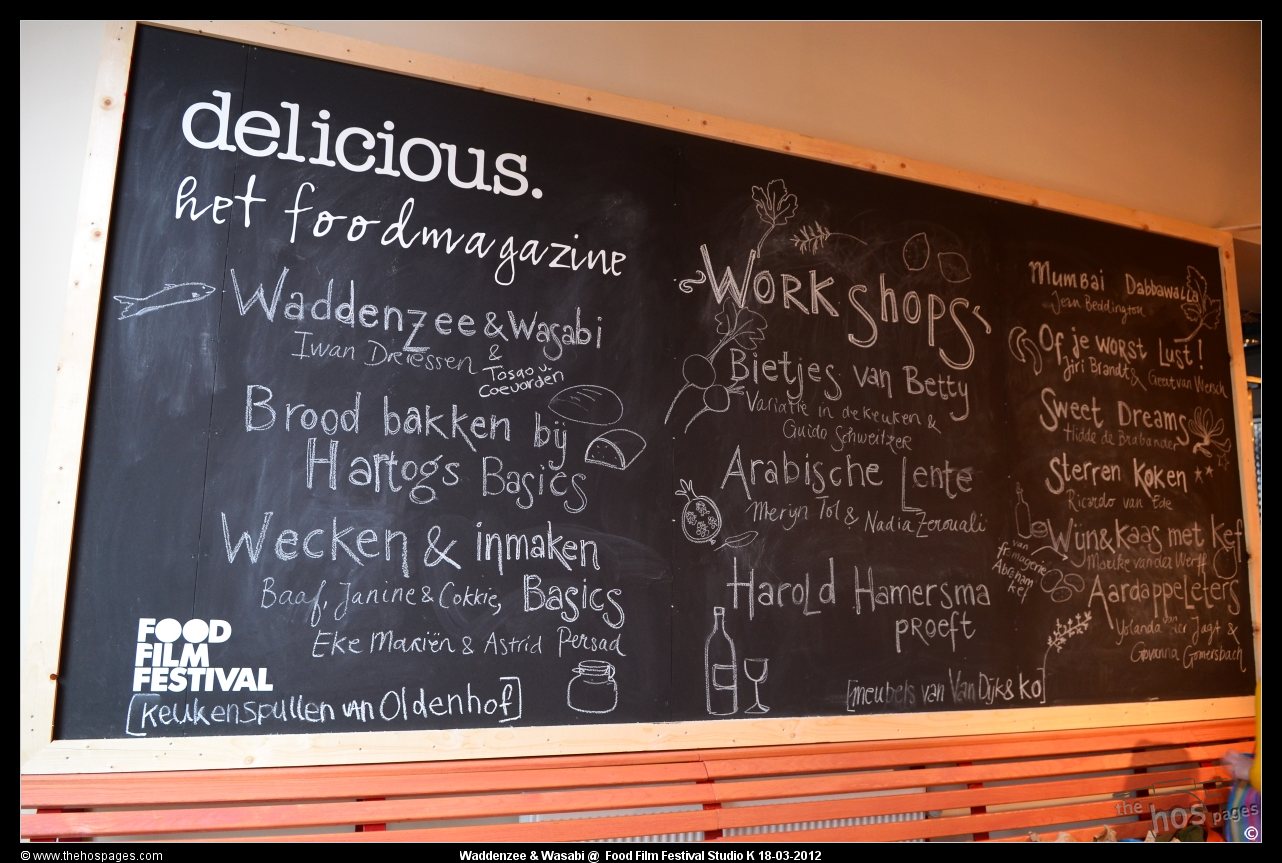 delicious.
het foodmagazine
Waddenzee & Wasabi
Iwan Driessen &
Tosao v.
Coevorden
Brood bakken bij
Hartogs Basics
Wecken & inmaken
Baaf, Janine & Cokkie, Basics
Eke Mariën & Astrid Persad
FOOD
FILM
FESTIVAL
[keukenspullen van Oldenhof]
Workshops
Bietjes van Betty
Variatie in de keuken &
Guido Schweitzer
Arabische Lente
Merijn Tol & Nadia Zerouali
Harold Hamersma
proeft
[meubels van Van Dijk & ko]
Mumbai Dabbawalla
Jean Beddington
Of je worst Lust!
Jiri Brandt &
Great van Wersch
Sweet Dreams
Hidde de Brabander
Sterren Koken **
Ricardo van Ede
Wijn & Kaas met Kef
Marike van der Werff
van
fromagerie
Abraham
Kef
Aardappeleters
Yolanda van der Jagt &
Giovanna Gomersbach
the hos pages
©
© www.thehospages.com
Waddenzee & Wasabi @ Food Film Festival Studio K 18-03-2012